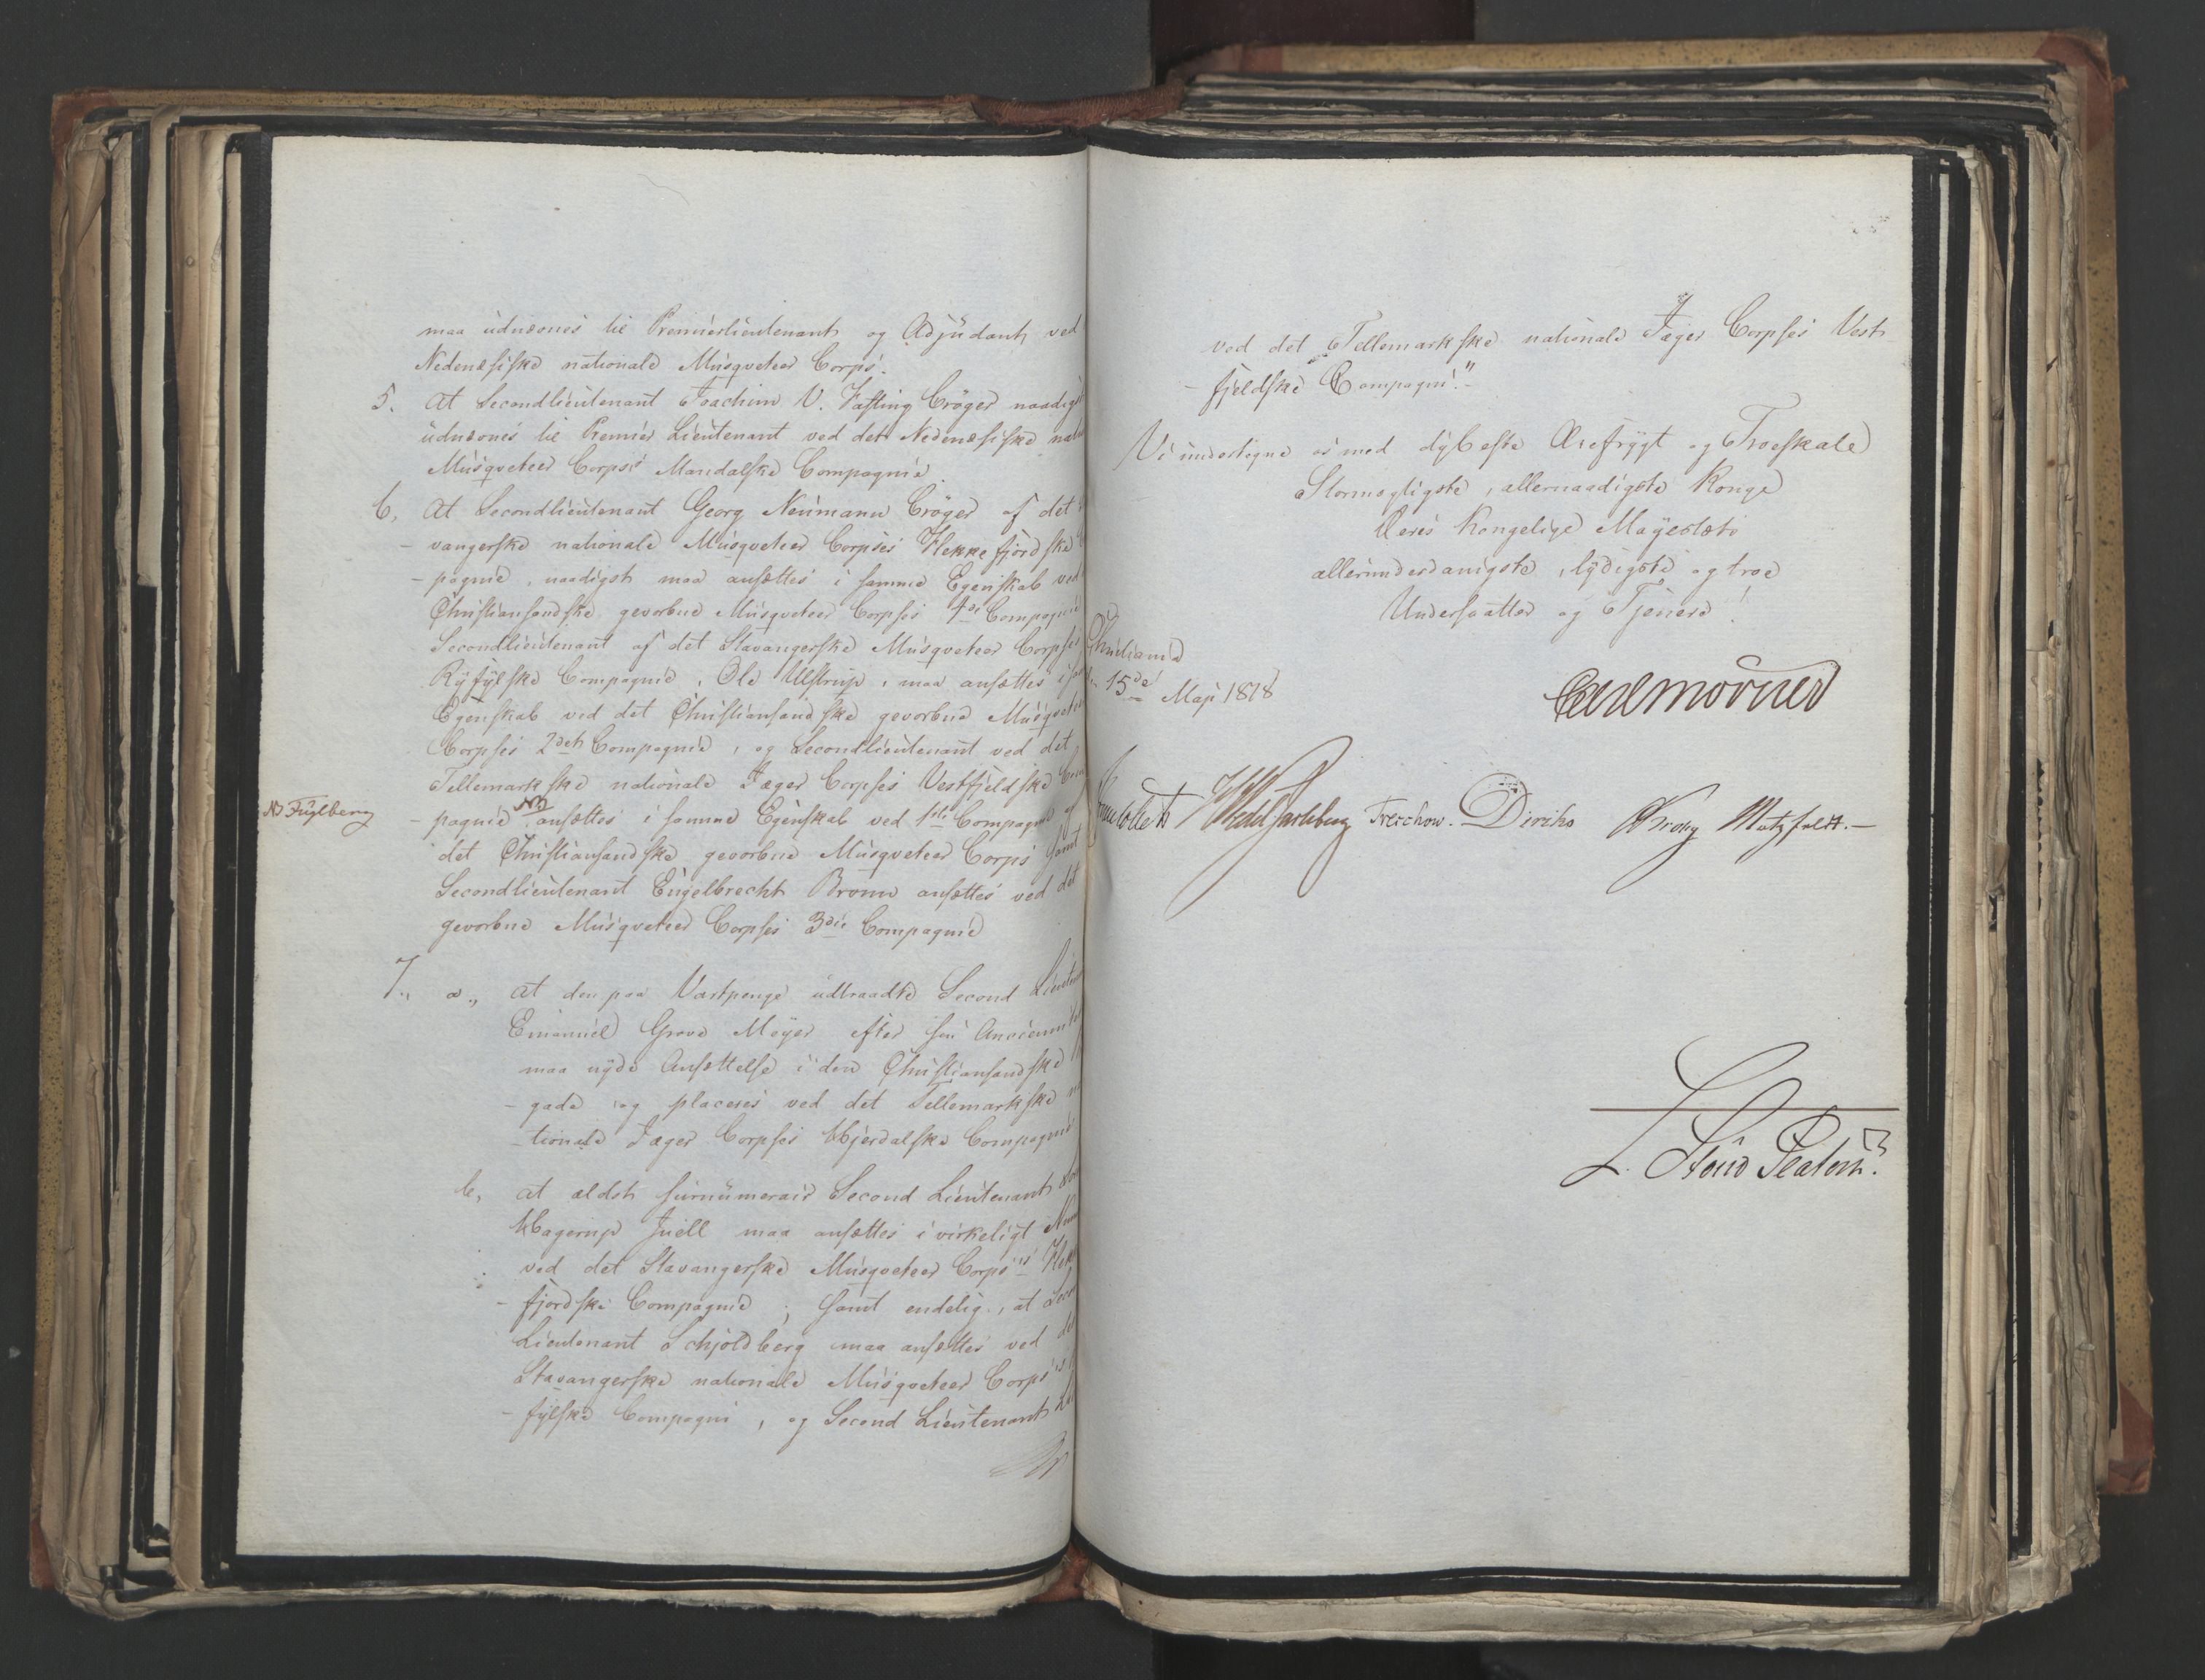 maa udnævnes til Premierlieutenant og Adjudant ved
Nedenæsiske nationale Musqveteer Corps.
5. At Secondlieutenant Joachim V. Fasting Crøger naadigst
udnævnes til Premier Lieutenant ved det Nedenæsiske
Musqveteer Corps's Mandalske Compagnie.
6, At Secondlieutenant Georg Neumann Crøger af det
-vangerske nationale Musqveteer Corpses Flekkefjordske
-pagnie, naadigst maa ansættes i samme Egenskab ved
Christiansandske gevorbne Musqveteer Corpses 4de Compagnie
Secondlieutenant af det Stavangerske Musqveteer Corpses
Ryfylske Compagnie, Ole Ulstrup, maa ansættes i
Egenskab ved det Christiansandske gevorbne Musqveteer
Corpses 2det Compagnie, og Secondlieutenant ved det
Tellemarkske nationale Jæger Corpses Vestfjeldske
NB Fuglberg
-pagnie NB ansættes i samme Egenskab ved 1ste Compagnie af
det Christiansandske gevorbne Musqveteer Corps samt
Secondlieutenant Engelbrecht Bronn ansættes ved det
gevorbne Musqveteer Corpses 3die Compagnie
7., a., at den paa Vartpenge udtraadte Second
Emanuel Grove Meyer efter sin
maa nyde Ansættelse i den Christiansandske
-gade og placeres ved det Tellemarkske
-tionale Jæger Corpses Hjerdalske Compagnie
b, at ældst surnumerair Second Lieutenant
Hagerup Juell maa ansættes i virkeligt
ved det Stavangerske Musqveteer Corps's
-fjordske Compagnie; samt endelig, at
Lieutenant Schjoldberg maa ansættes ved
Stavangerske nationale Musqveteer Corps's
-fylske Compagni, og Second Lieutenant
ved det Tellemarkske nationale Jæger Corpses Vest-
-fjeldske Compagni."
Vi undertegne os med dybeste Ærefrygt og Troeskab
Stormægtigste, allernaadigste Konge
Deres Kongelige Mayestæts
allerunderdanigste, lydigste og troe
Undersaatter og Tjenere!
Christiania
15de Maji 1818
Carl Mörner
Sommerhielm HWedel Jarlsberg Treschow. Diriks CKrohg Motzfeldt.-
L. Stoud Platou.